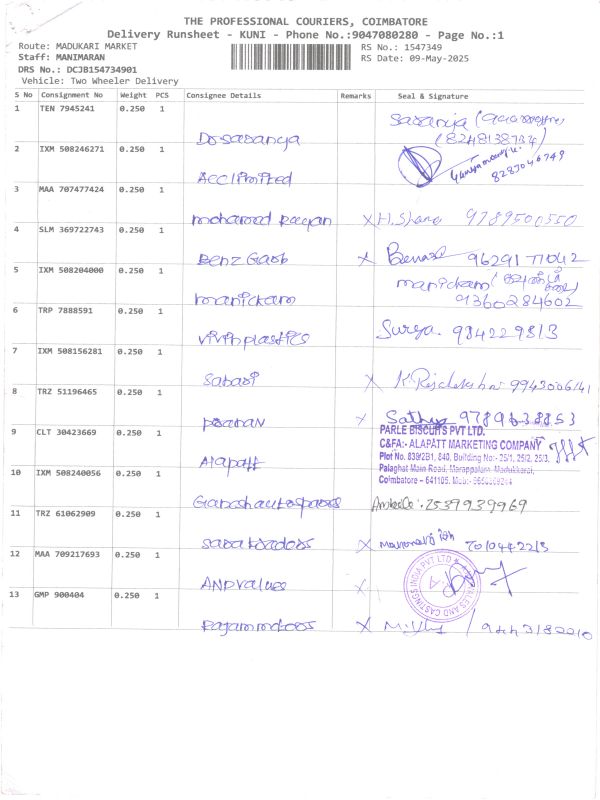 THE PROFESSIONAL COURIERS, COIMBATORE
Delivery Runsheet - KUNI - Phone No.:9047080280 - Page No.:1
Route: MADUKARI MARKET
RS No.: 1547349
Staff: MANIMARAN
RS Date: 09-May-2025
DRS No.: DCJB154734901
Vehicle: Two Wheeler Delivery
S No Consignment No Weight PCS Consignee Details Remarks Seal & Signature
1 TEN 7945241 0.250 1
Sasanja
(8248138734)
Dosasanya
2 IXM 508246271 0.250 1
8287046749
Acclimited
3 MAA 707477424 0.250 1
mohamed X H. Shang 9789500550
4 SLM 369722743 0.250 1
Benz Gasb X 9629171042
5 IXM 508204000 0.250 1
manickam
9360284602
manickam
6 TRP 7888591 0.250 1
Surya. 984229813
vivinplastics
7 IXM 508156281 0.250 1
Sabasi X 9943006141
8 TRZ 51196465 0.250 1
X Sathya 9789638853
9 CLT 30423669 0.250 1
PARLE BISCUITS PVT LTD.
C&FA:- ALAPATT MARKETING COMPANY
Plot No. 838/2B1, 840, Building No:- 25/1, 25/2, 25/3,
Palaghat Main Road, Marappalam, Madukkarai,
Coimbatore - 641105.
Alapatt
10 IXM 508240056 0.250 1
Ganeshautospases 2539939969
11 TRZ 61062909 0.250 1
X 7010442213
12 MAA 709217693 0.250 1
SALES AND CASTINGS INDIA PVT LTD
ANPvalues X
13 GMP 900404 0.250 1
Rajammotors X 9443182210